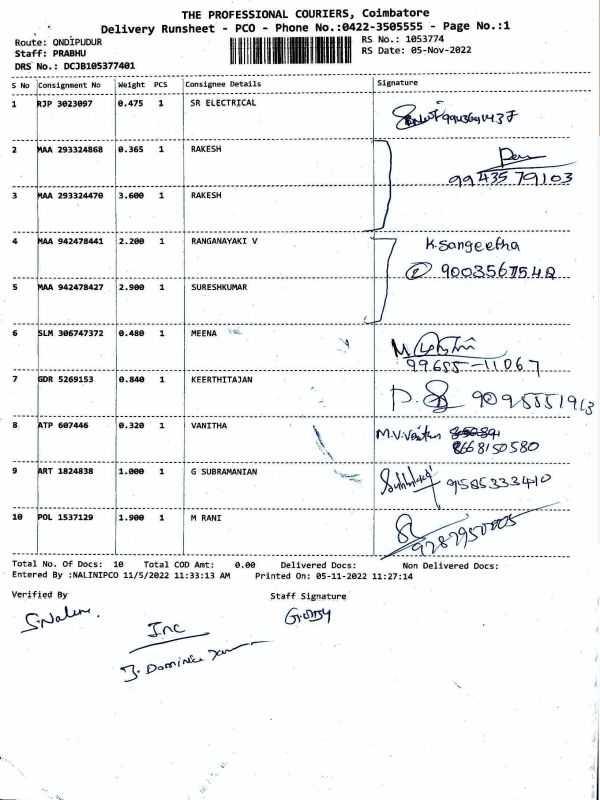 THE PROFESSIONAL COURIERS, Coimbatore
Delivery Runsheet - PCO - Phone No.:0422-3505555 - Page No.:1
Route: ONDIPUDUR
RS No.: 1053774
Staff: PRABHU
RS Date: 05-Nov-2022
DRS No.: DCJB105377401
S No Consignment No Weight PCS Consignee Details Signature
1 RJP 3023097 0.475 1 SR ELECTRICAL
2 MAA 293324868 0.365 1 RAKESH
99435 79103
3 MAA 293324470 3.600 1 RAKESH
4 MAA 942478441 2.200 1 RANGANAYAKI V K.Sangeetha
5 MAA 942478427 2.900 1 SURESHKUMAR
6 SLM 306747372 0.480 1 MEENA M
99655-11067
7 GDR 5269153 0.840 1 KEERTHITAJAN 9095551913
8 ATP 607446 0.320 1 VANITHA M.V.Vanitha
8668150580
9 ART 1824838 1.000 1 G SUBRAMANIAN 9585333410
10 POL 1537129 1.900 1 M RANI
Total No. Of Docs: 10 Total COD Amt: 0.00 Delivered Docs: Non Delivered Docs:
Entered By :NALINIPCO 11/5/2022 11:33:13 AM Printed On: 05-11-2022 11:27:14
Verified By Staff Signature
S.Nalini
Inc
J. Dominic